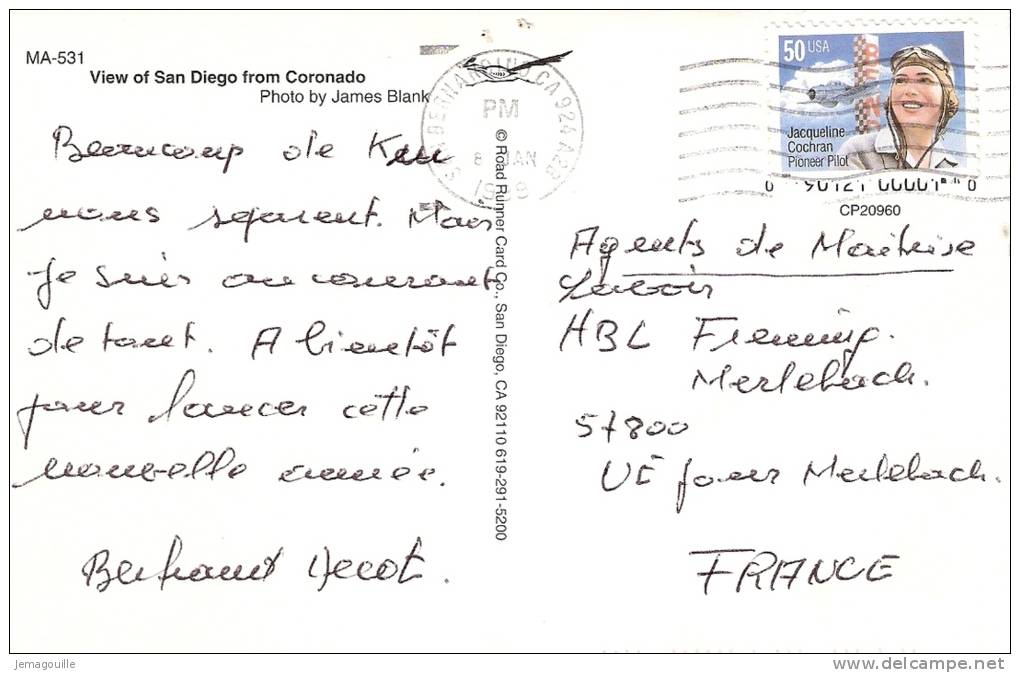 MA-531
View of San Diego from Coronado
Photo by James Blank
Beaucoup de Km
nous séparent. Mais
Je suis au courant
de tout. A bientôt
pour lancer cette
nouvelle année.
Bertrand
© Road Runner Card Co., San Diego, CA 92110 619-291-5200
S. BERNARDINO, CA 924
PM
8 JAN
50 USA
Jacqueline
Cochran
Pioneer Pilot
CP20960
Agents de Maîtrise
Lavoir
HBL Freming.
Merlebach.
57800
UE pour Merlebach.
FRANCE
Jemagouille
www.delcampe.net